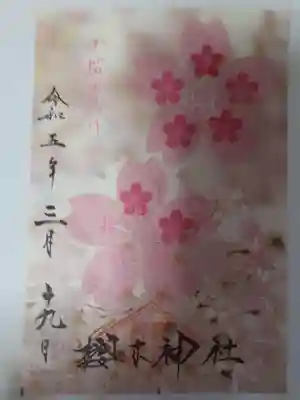 令和五年三月十九日
櫻木神社